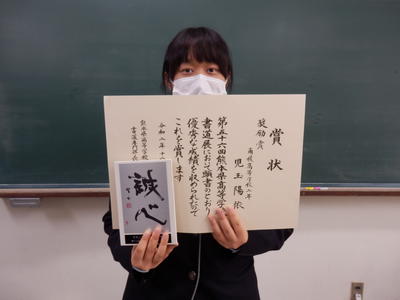 賞状
奨励賞
高校高等学校二年
児玉陽依
第五十六回熊本県高等学
書道展において頭書のとおり
優秀な成績を収められたので
これを賞します
令和二年十
熊本県高等学校
書道専門部長
誠心